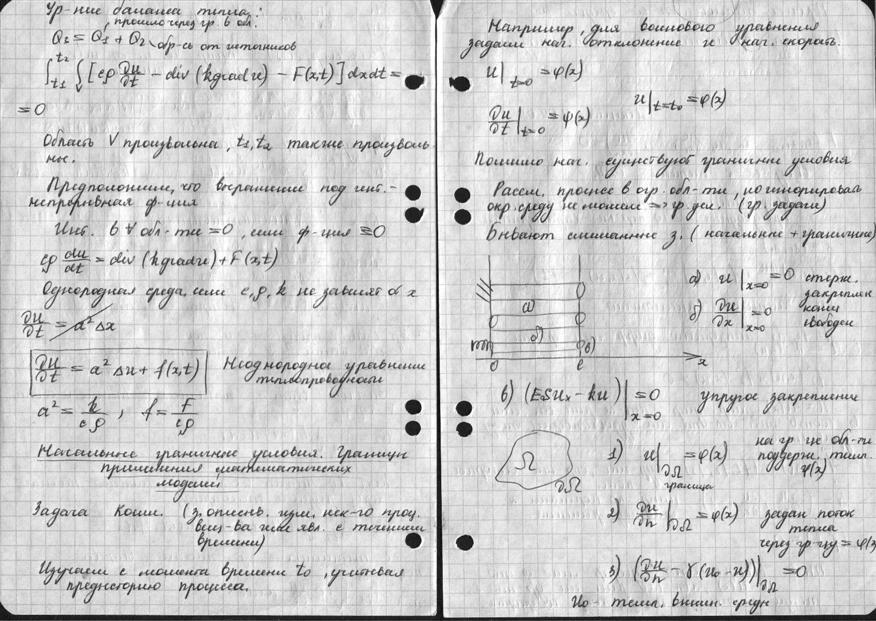 Ур-ние баланса тепла:
прошло через гр. в обл.
Q₂ = Q₁ + Q₂ обр-ся от источников
∫t₁^t₂ ∫V [cρ ∂u/∂t − div (k grad u) − F(x,t)] dx dt =
= 0
Область V произвольна, t₁, t₂ также произволь-
ны.
Предположим, что выражение под инт. -
непрерывная ф-ция
Инт. в ∀ обл-ти = 0, если ф-ция ≡ 0
cρ du/dt = div (k grad u) + F(x,t)
Однородная среда, если c, ρ, k не зависят от x
∂u/∂t = a² Δx
∂u/∂t = a² Δu + f(x,t) Неоднородна уравнение
теплопроводности
a² = k/cρ , f = F/cρ
Начальные граничные условия. Границы
применения математических
моделей
Задача Коши. (з. описыв. изм. нек-го проц.
вещ-ва или явл. с течением
времени)
Изучаем с момента времени t₀, учитывая
предысторию процесса.
Например, для волнового уравнения
задаем нач. отклонение и нач. скорость.
u|t=0 = φ(x)
∂u/∂t|t=0 = ψ(x) u|t=t₀ = φ(x)
Помимо нач. существуют граничные условия
Рассм. процесс в огр. обл-ти, но игнорировал
окр. среду не можем => гр. усл. (гр. задачи)
Бывают смешанные з. (начальные + граничные)
а) u|x=0 = 0 стерж.
закреплен
б) ∂u/∂x|x=0 = 0 конец
свободен
а)
б)
в)
0 l x
в) (ESuₓ − ku)|x=0 = 0 упругое закрепление
Ω
∂Ω
1) u|∂Ω = φ(x) на гр-це обл-ти
поддерж. темп.
φ(x)
граница
2) ∂u/∂n|∂Ω = φ(x) задан поток
тепла
через гр-цу = φ(x)
3) (∂u/∂n − γ(u₀ − u))|∂Ω = 0
u₀ - темп. внешн. среды